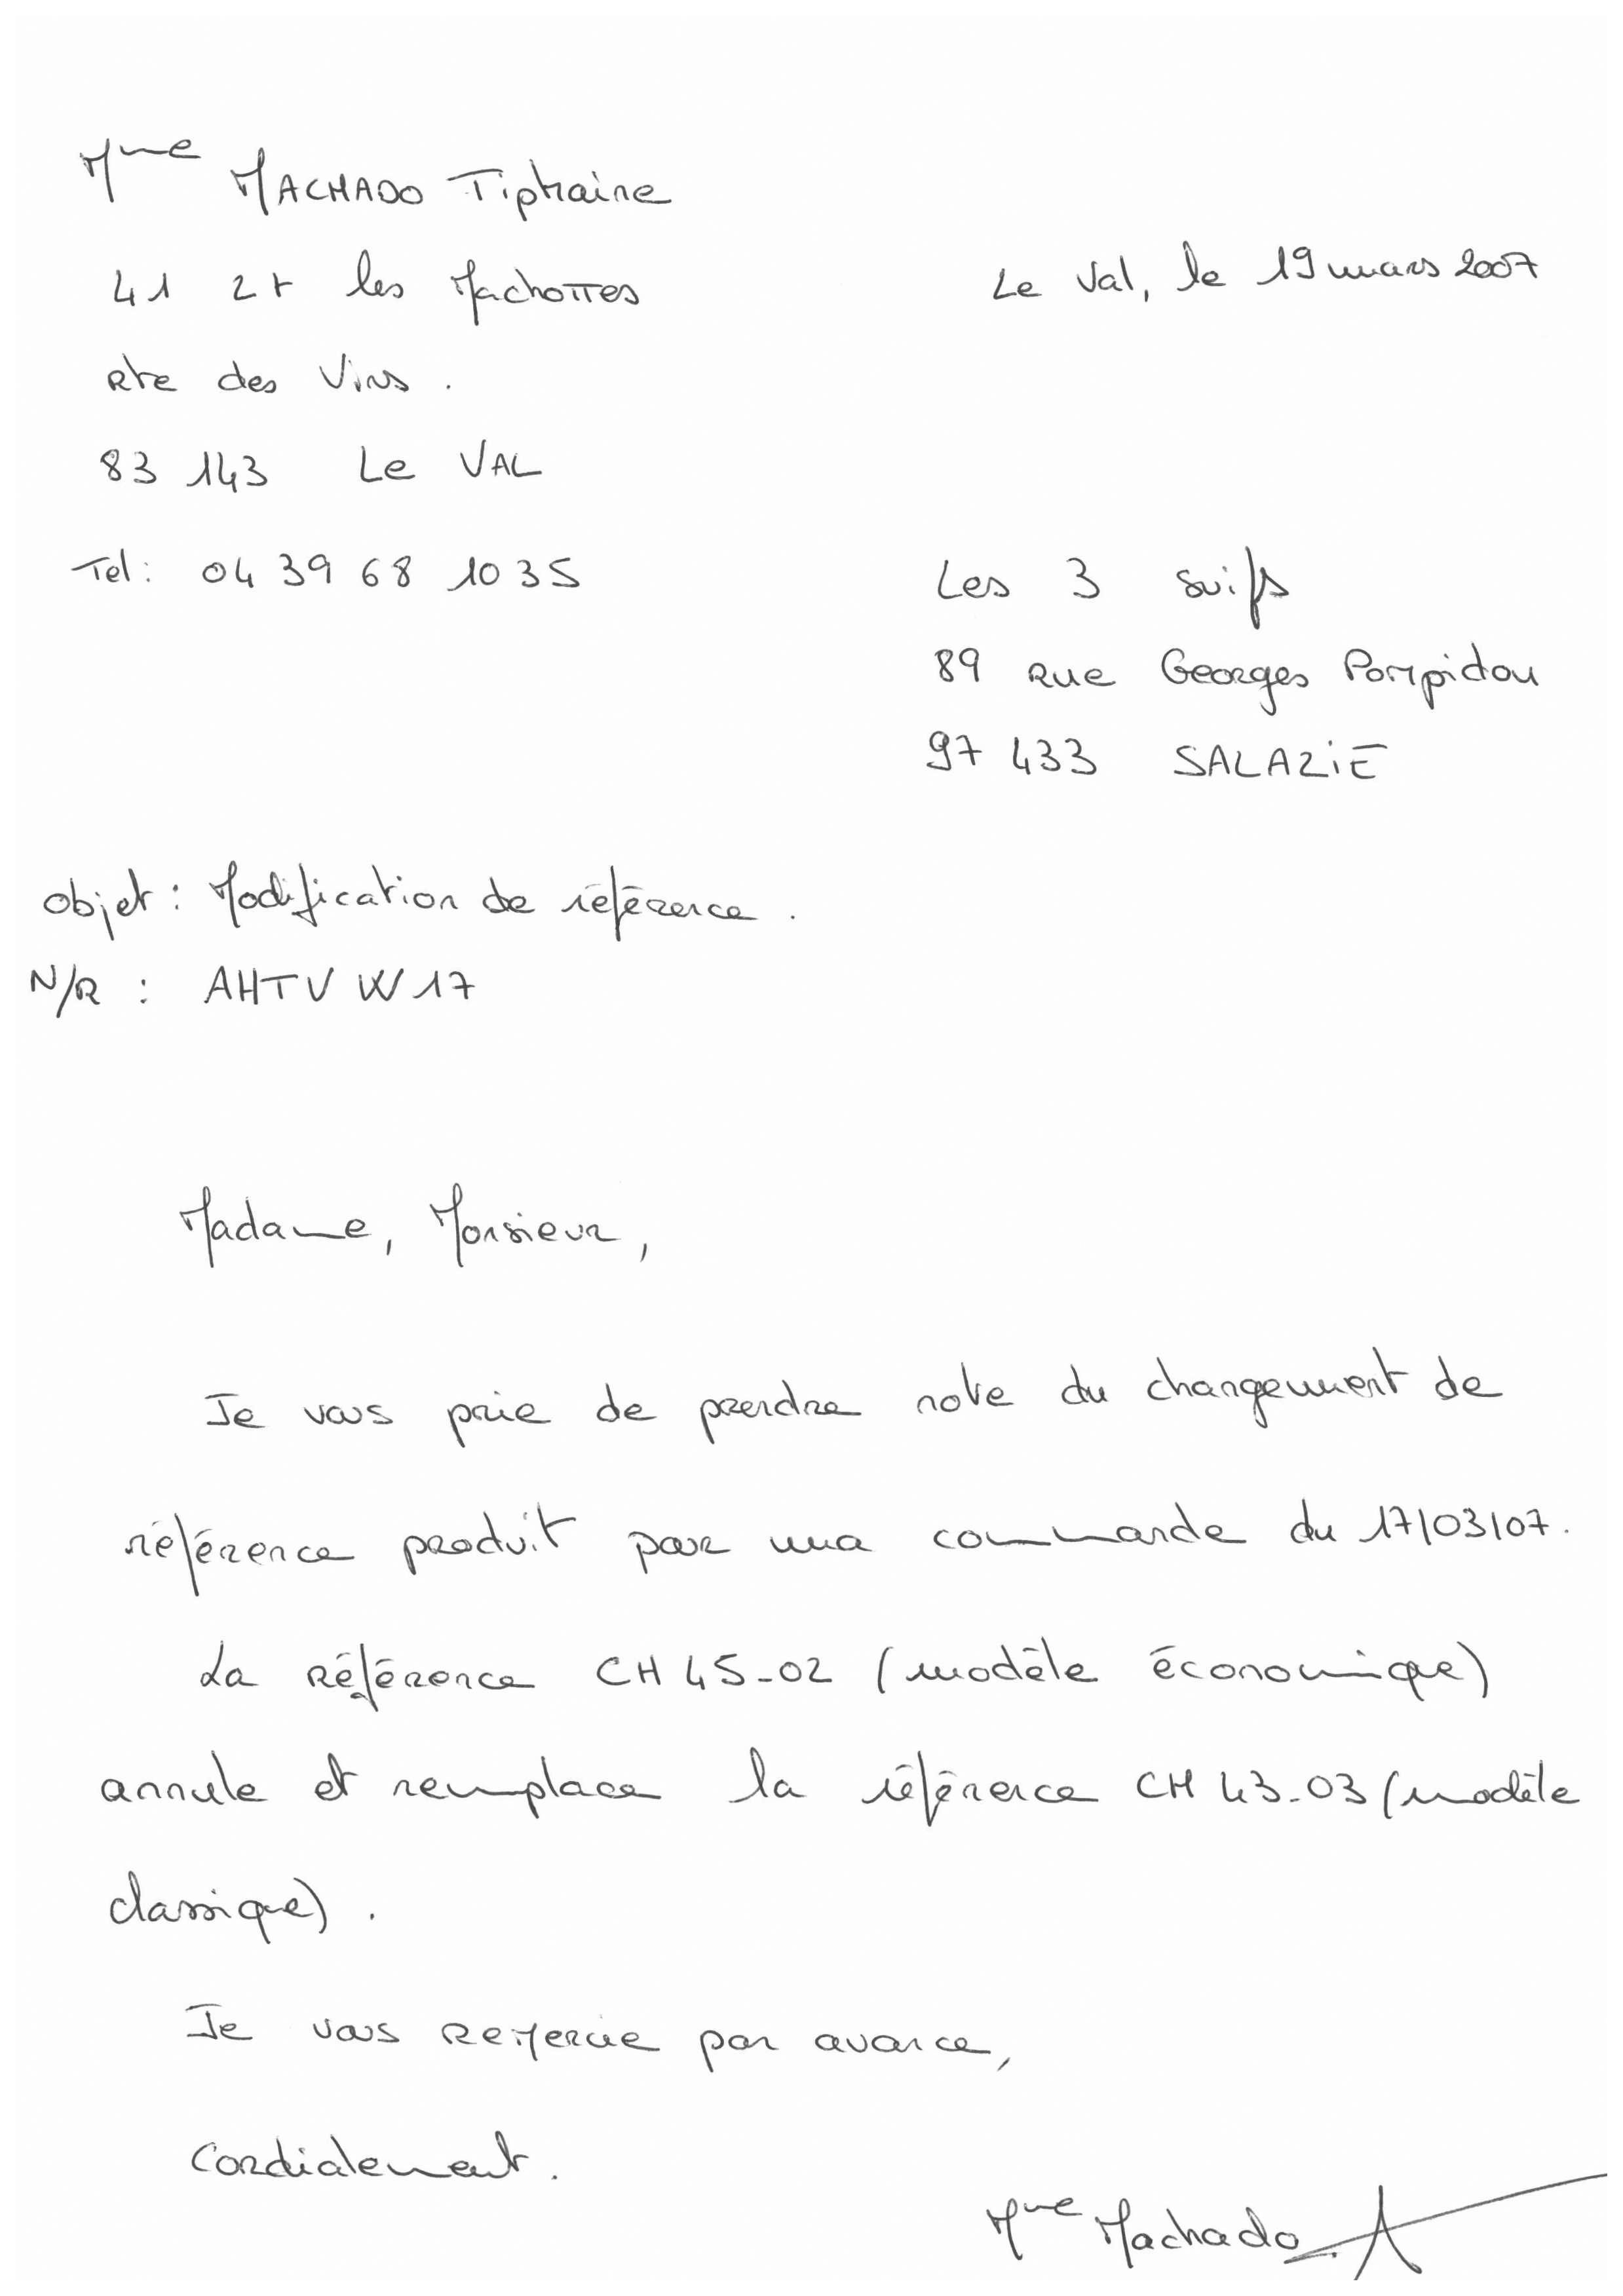 Mme MACHADO Tiphaine
41 lt les Machottes
Rte des Vins.
83 143 Le VAL
Tel: 04 39 68 10 35
Le Val, le 19 mars 2007
Les 3 suifs
89 Rue Georges Pompidou
97 433 SALAZIE
Objet : Modification de référence.
N/R : AHTVW17
Madame, Monsieur,
Je vous prie de prendre note du changement de
référence produit pour ma commande du 17/03/07.
La référence CH45-02 (modèle économique)
annule et remplace la référence CH43-03 (modèle
classique).
Je vous remercie par avance,
Cordialement.
Mme Machado.